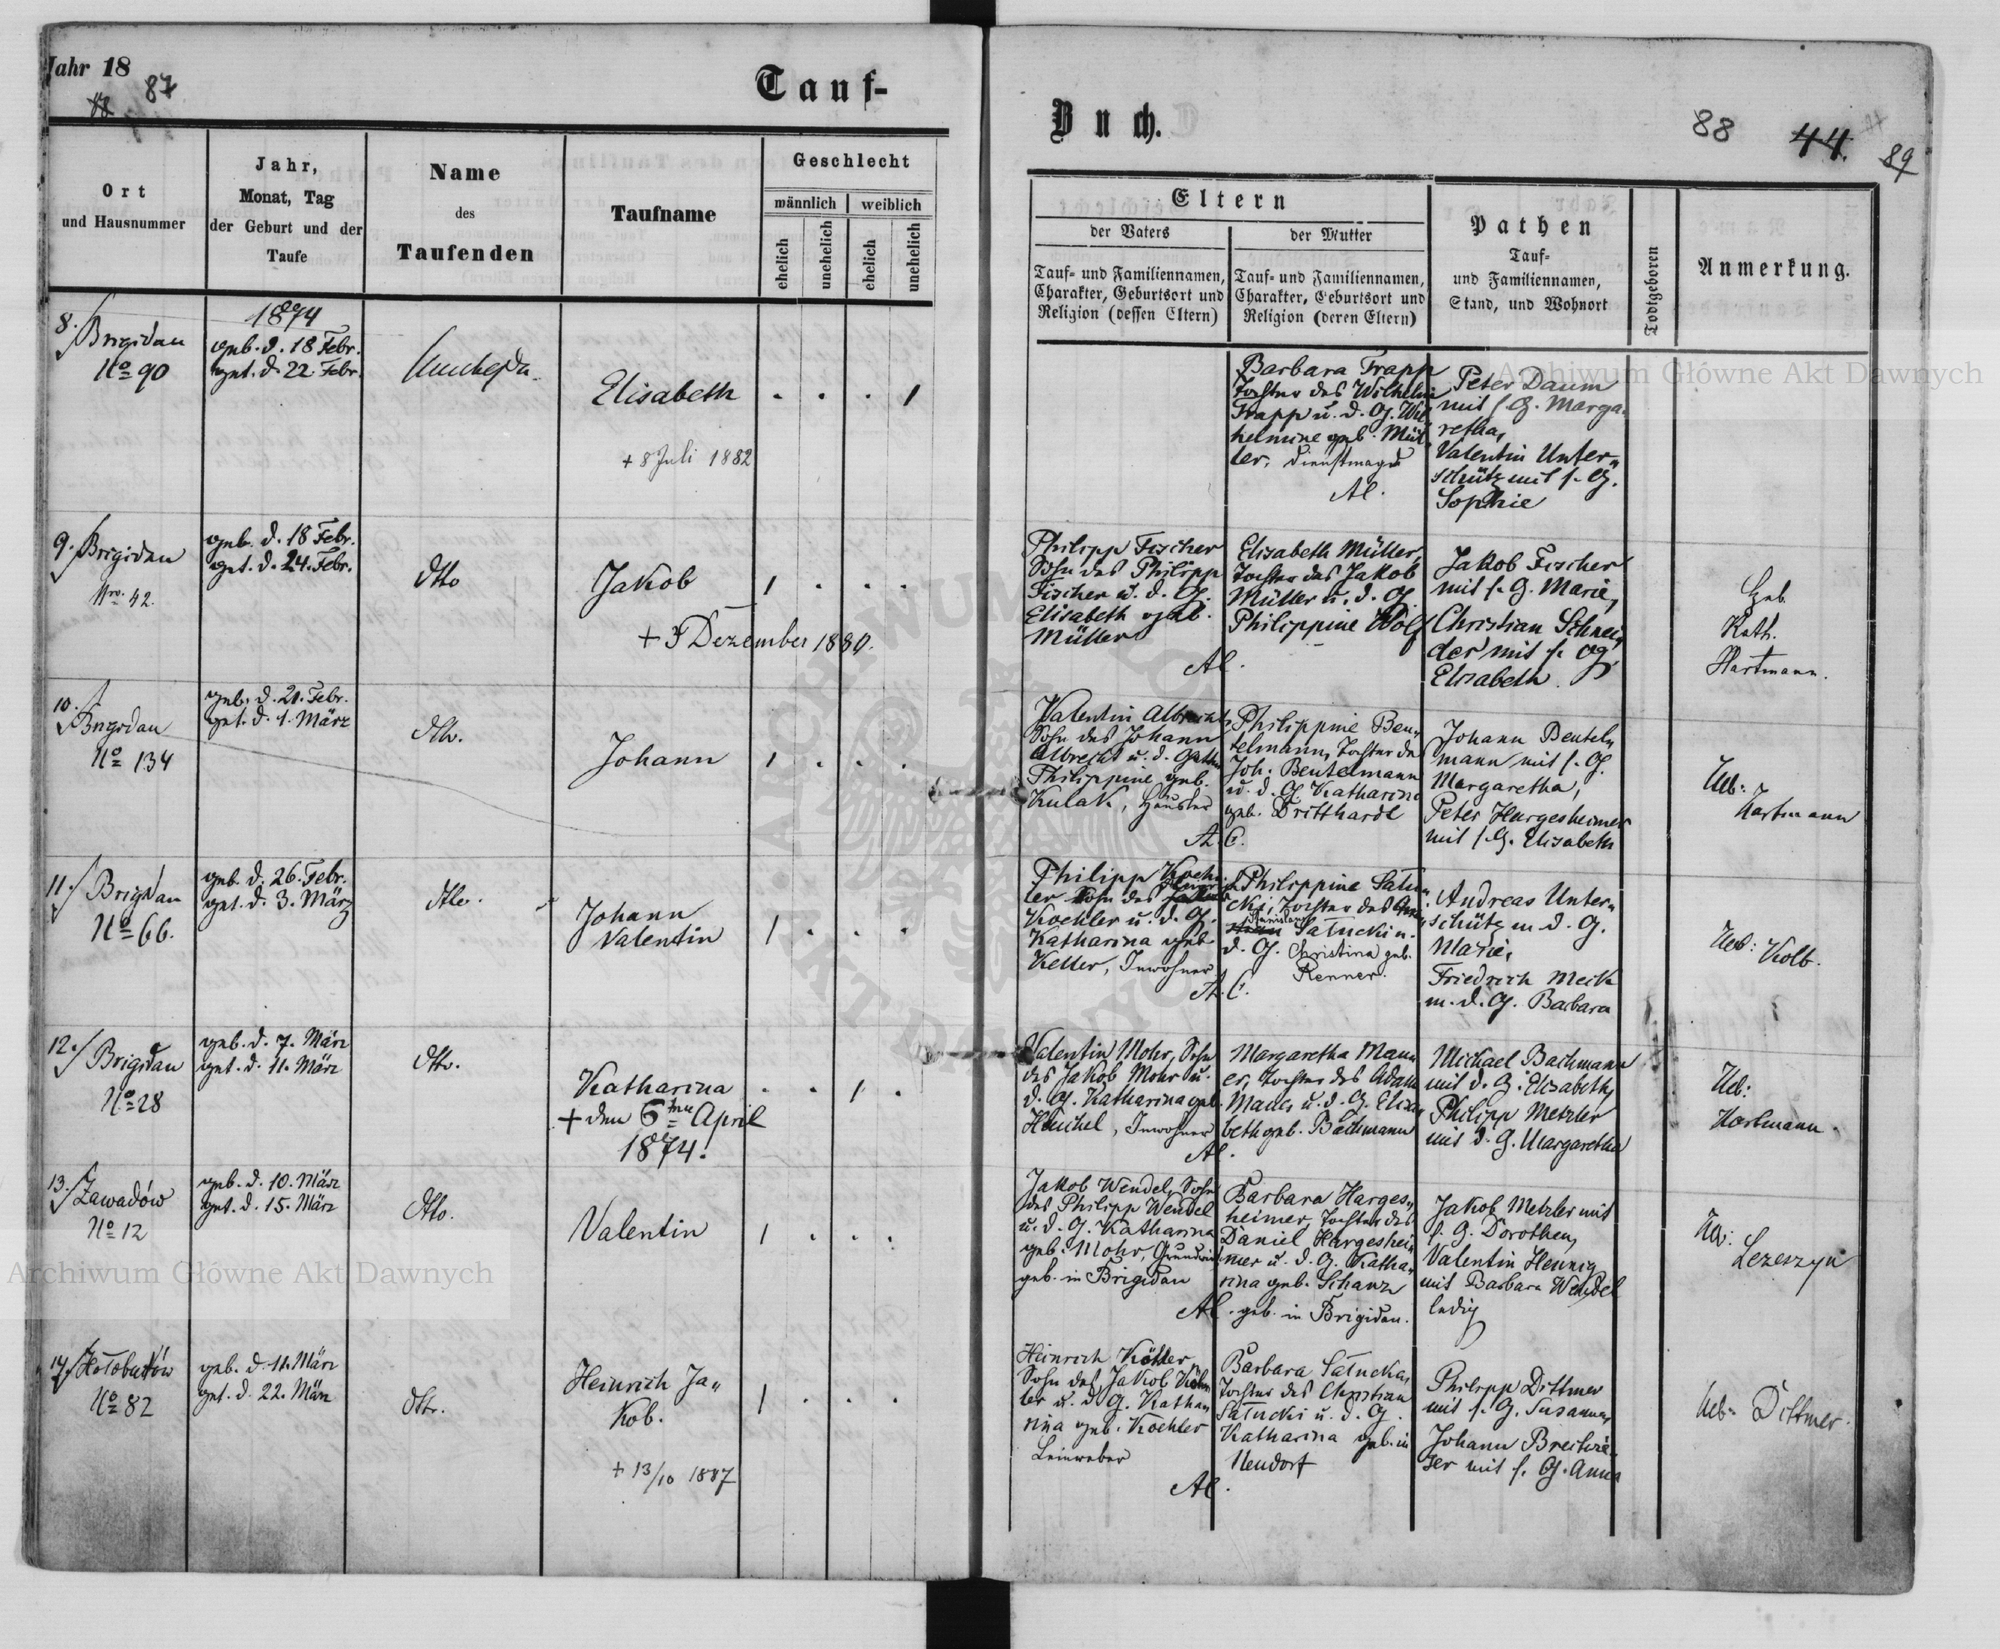 Jahr 18
87
Tauf-
Buch.
88
44.
89
Ort
und Hausnummer
Jahr,
Monat, Tag
der Geburt und der
Taufe
Name
des
Taufenden
Taufname
Geschlecht
männlich
weiblich
ehelich
unehelich
ehelich
unehelich
Eltern
der Vaters
der Mutter
Tauf- und Familiennamen,
Charakter, Geburtsort und
Religion (dessen Eltern)
Tauf- und Familiennamen,
Charakter, Geburtsort und
Religion (deren Eltern)
Pathen
Tauf-
und Familiennamen,
Stand, und Wohnort
Todtgeboren
Anmerkung.
8. Brigidau
No 90
1874
geb. d. 18 Febr.
get. d. 22. Febr.
Elisabeth
+ 8 Juli 1882
Barbara Trapp
Tochter des Wilhelm
Trapp u. d. G. Wil-
helmine geb. Mül-
ler, Dienstmagd
A.C.
Peter Daum
mit s. G. Marga-
retha,
Valentin Unter-
schütz mit s. G.
Sophie
9. Brigidau
Nro. 42.
geb. d. 18 Febr.
get. d. 24. Febr.
dtto
Jakob
Dezember 1880.
Philipp Fischer
Sohn des Philipp
Fischer u. d. G.
Elisabeth geb.
Müller
A.C.
Elisabeth Müller,
Tochter des Jakob
Müller u. d. G.
Philippine Wolf
Jakob Fischer
mit s. G. Marie,
Christian Schnei-
der mit s. G.
Elisabeth.
Heb.
Kath.
Hartmann.
10. Brigidau
No 134
geb. d. 21. Febr.
get. d. 1. März
dtto.
Johann
Valentin Albrecht
Sohn des Johann
Albrecht u. d. Gattin
Philippine geb.
Kulak, Häusler
A.C.
Philippine Beu-
telmann, Tochter des
Joh. Beutelmann
u. d. G. Katharina
geb. Dritthardt
Johann Beutel-
mann mit s. G.
Margaretha,
Peter Hargesheimer
mit s. G. Elisabeth
Heb:
Hartmann
11. Brigidau
No 66.
geb. d. 26. Febr.
get. d. 3. März
dtto.
Johann
Valentin
Philipp Koeh-
ler Sohn des
Koehler u. d. G.
Katharina geb.
Keller, Inwohner
A.C.
Philippine Satuc-
cki, Tochter des
Stanislaus
Satucki u.
d. G. Christina geb.
Renner.
Andreas Unter-
schütz m. d. G.
Marie,
Friedrich Meck
m. d. G. Barbara
Heb: Kolb.
12. Brigidau
No 28
geb. d. 7. März
get. d. 11. März
dtto.
Katharina
+ den 6ten April
1874.
Valentin Mohr, Sohn
des Jakob Mohr u.
d. G. Katharina geb.
Heuchel, Inwohner
A.C.
Margaretha Mau-
er, Tochter des Adam
Mauer u. d. G. Elisa-
beth geb. Bachmann
Michael Bachmann
mit d. G. Elisabeth,
Philipp Metzler
mit d. G. Margaretha
Heb:
Hartmann.
13. Zawadów
No 12
geb. d. 10. März
get. d. 15. März
dtto.
Valentin
Jakob Wendel, Sohn
des Philipp Wendel
u. d. G. Katharina
geb. Mohr, Grundwirth
geb. in Brigidau
A.C.
Barbara Harges-
heimer, Tochter des
Daniel Hargeshei-
mer u. d. G. Katha-
rina geb. Schanz
geb. in Brigidau.
Jakob Metzler mit
s. G. Dorothea,
Valentin Hennig
mit Barbara Wendel
ledig
Heb:
14. Hołobutów
No 82
geb. d. 11. März
get. d. 22. März
dtto.
Heinrich Ja-
kob.
+ 13/10 1887
Heinrich Köhler
Sohn des Jakob Köh-
ler u. d. G. Katha-
rina geb. Koehler
Leinweber
A.C.
Barbara Satucka,
Tochter des Christian
Satucki u. d. G.
Katharina geb. in
Neudorf
Philipp Dittmer
mit s. G. Susanna,
Johann Breitwie-
ser mit s. G. Anna
Heb. Dittmer.
Archiwum Główne Akt Dawnych
Archiwum Główne Akt Dawnych